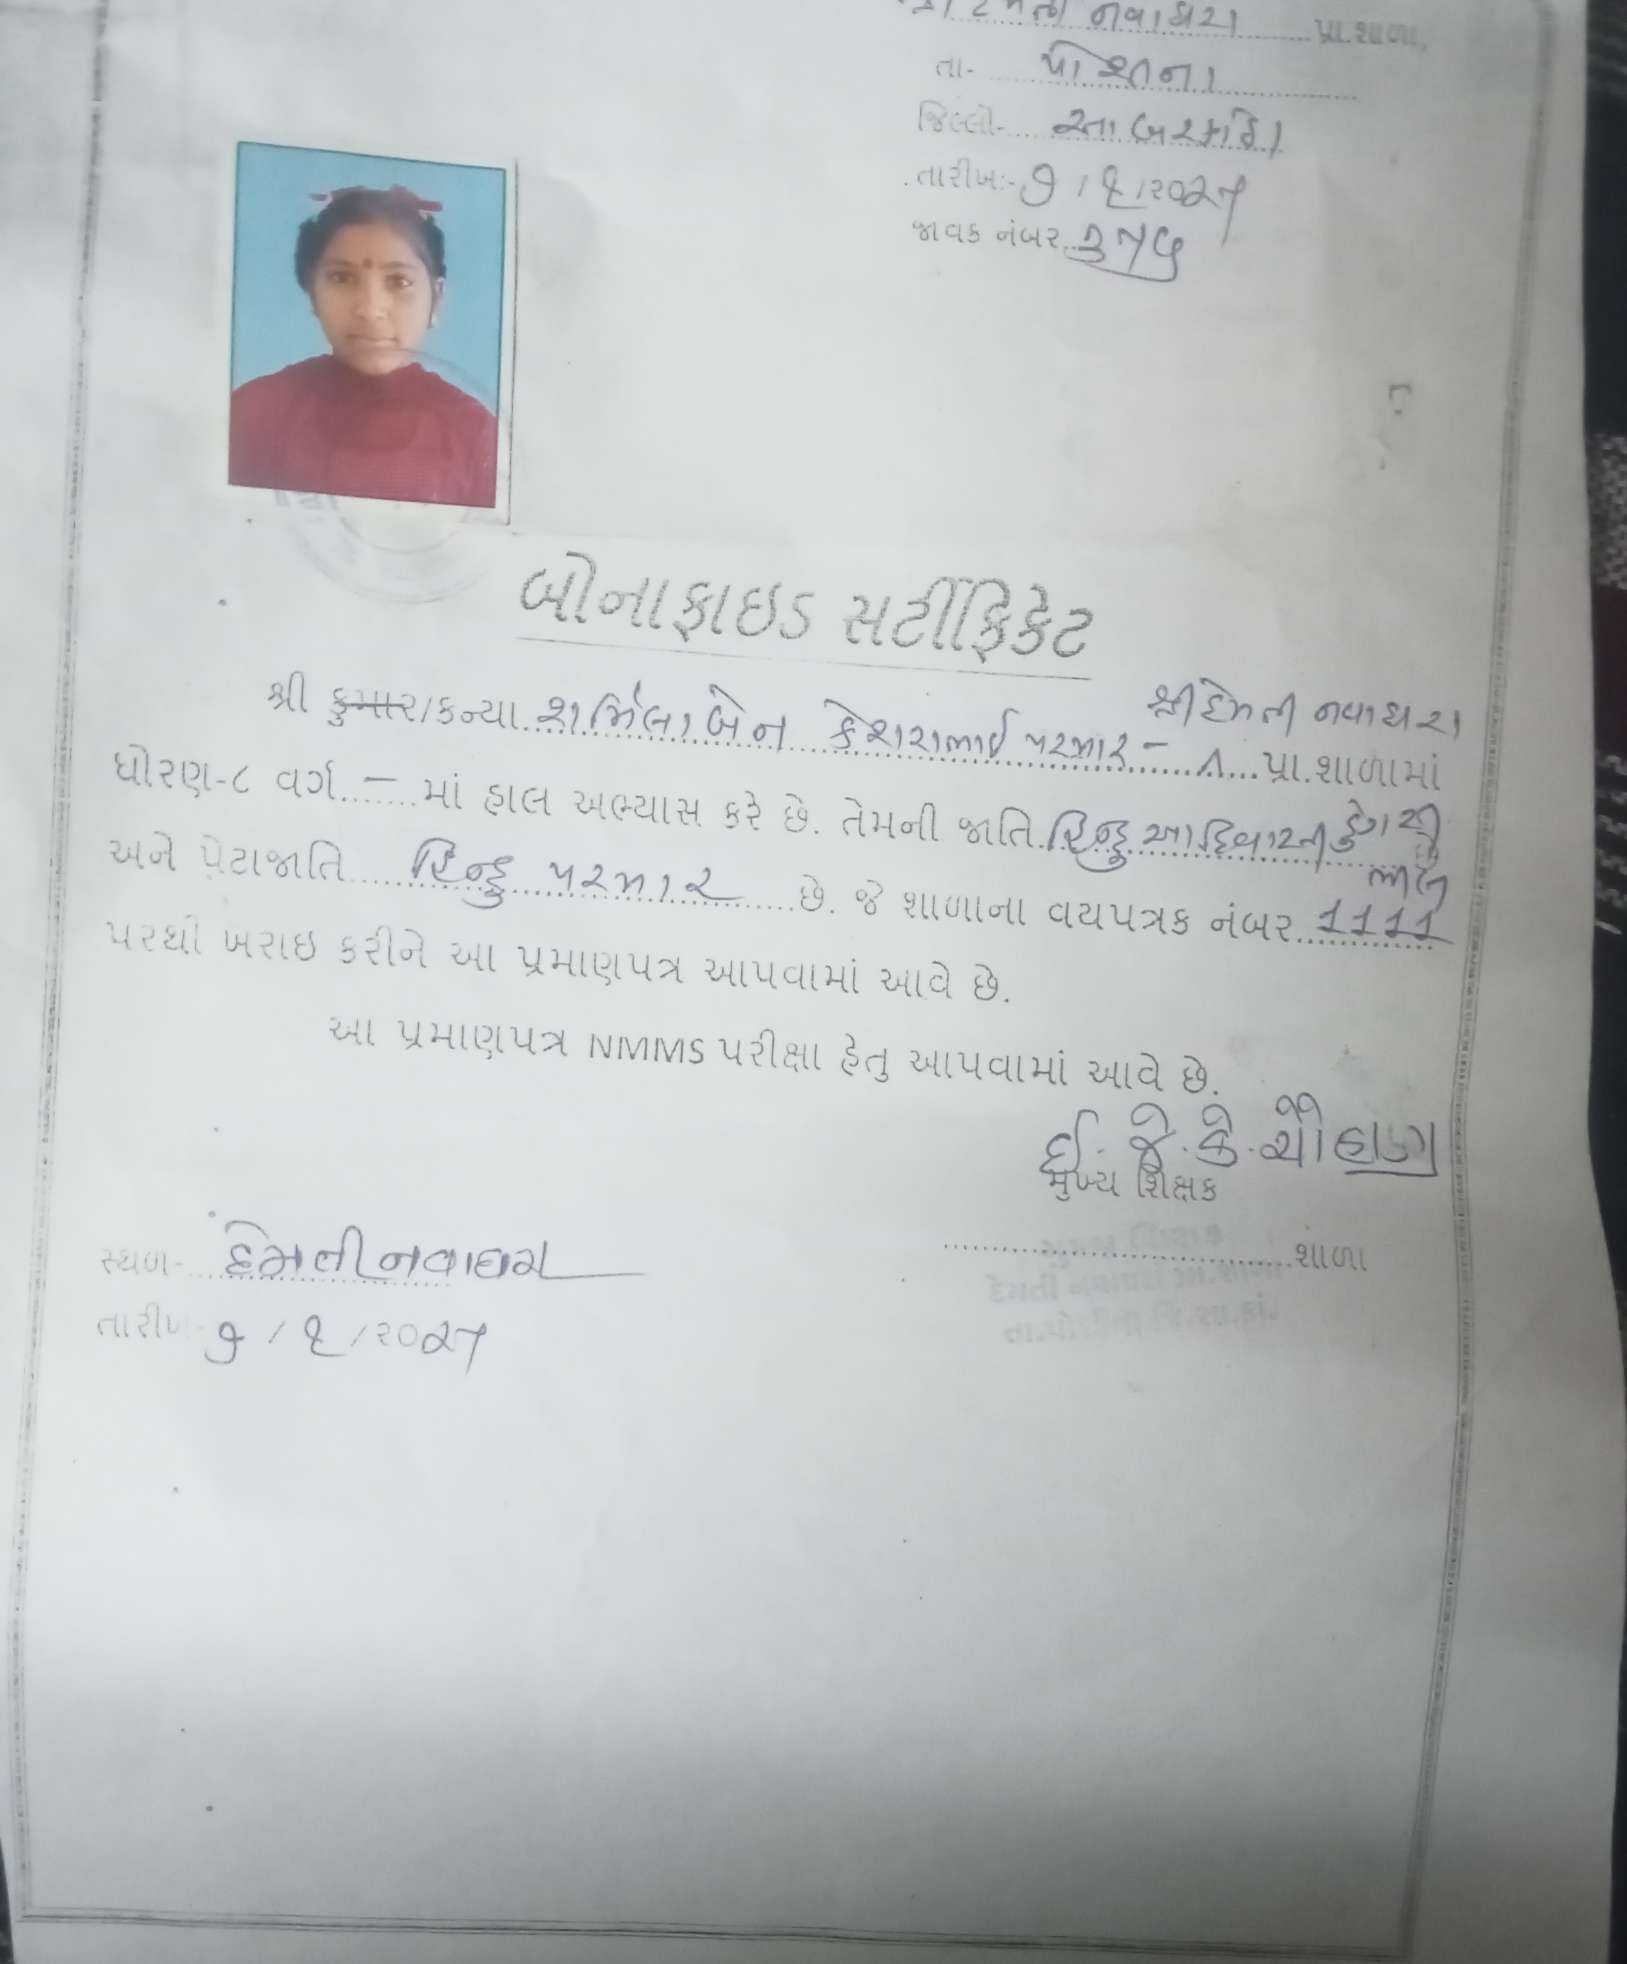 શ્રી દેમતી નવાઘરા પ્રા.શાળા,
તા- પોશીના
જિલ્લો- સાબરકાંઠા
તારીખ:- ૭/૧/૨૦૨૫
જાવક નંબર
બોનાફાઇડ સર્ટીફિકેટ
શ્રી દેમતી નવાઘરા
શ્રી કુમાર/કન્યા. શર્મિલાબેન કેશરાભાઈ પરમાર - પ્રા.શાળામાં
ધોરણ-૮ વર્ગ. - માં હાલ અભ્યાસ કરે છે. તેમની જાતિ. હિન્દુ આદિવાસી ડુંગરી
ભીલ
અને પેટાજાતિ હિન્દુ પરમાર છે. જે શાળાના વયપત્રક નંબર. 1111
પરથી ખરાઇ કરીને આ પ્રમાણપત્ર આપવામાં આવે છે.
આ પ્રમાણપત્ર NMMS પરીક્ષા હેતુ આપવામાં આવે છે.
ઈ. જે. કે. ચૌહાણ
મુખ્ય શિક્ષક
શાળા
સ્થળ- દેમતી નવાઘરા
તારીખ- ૭/૧/૨૦૨૫